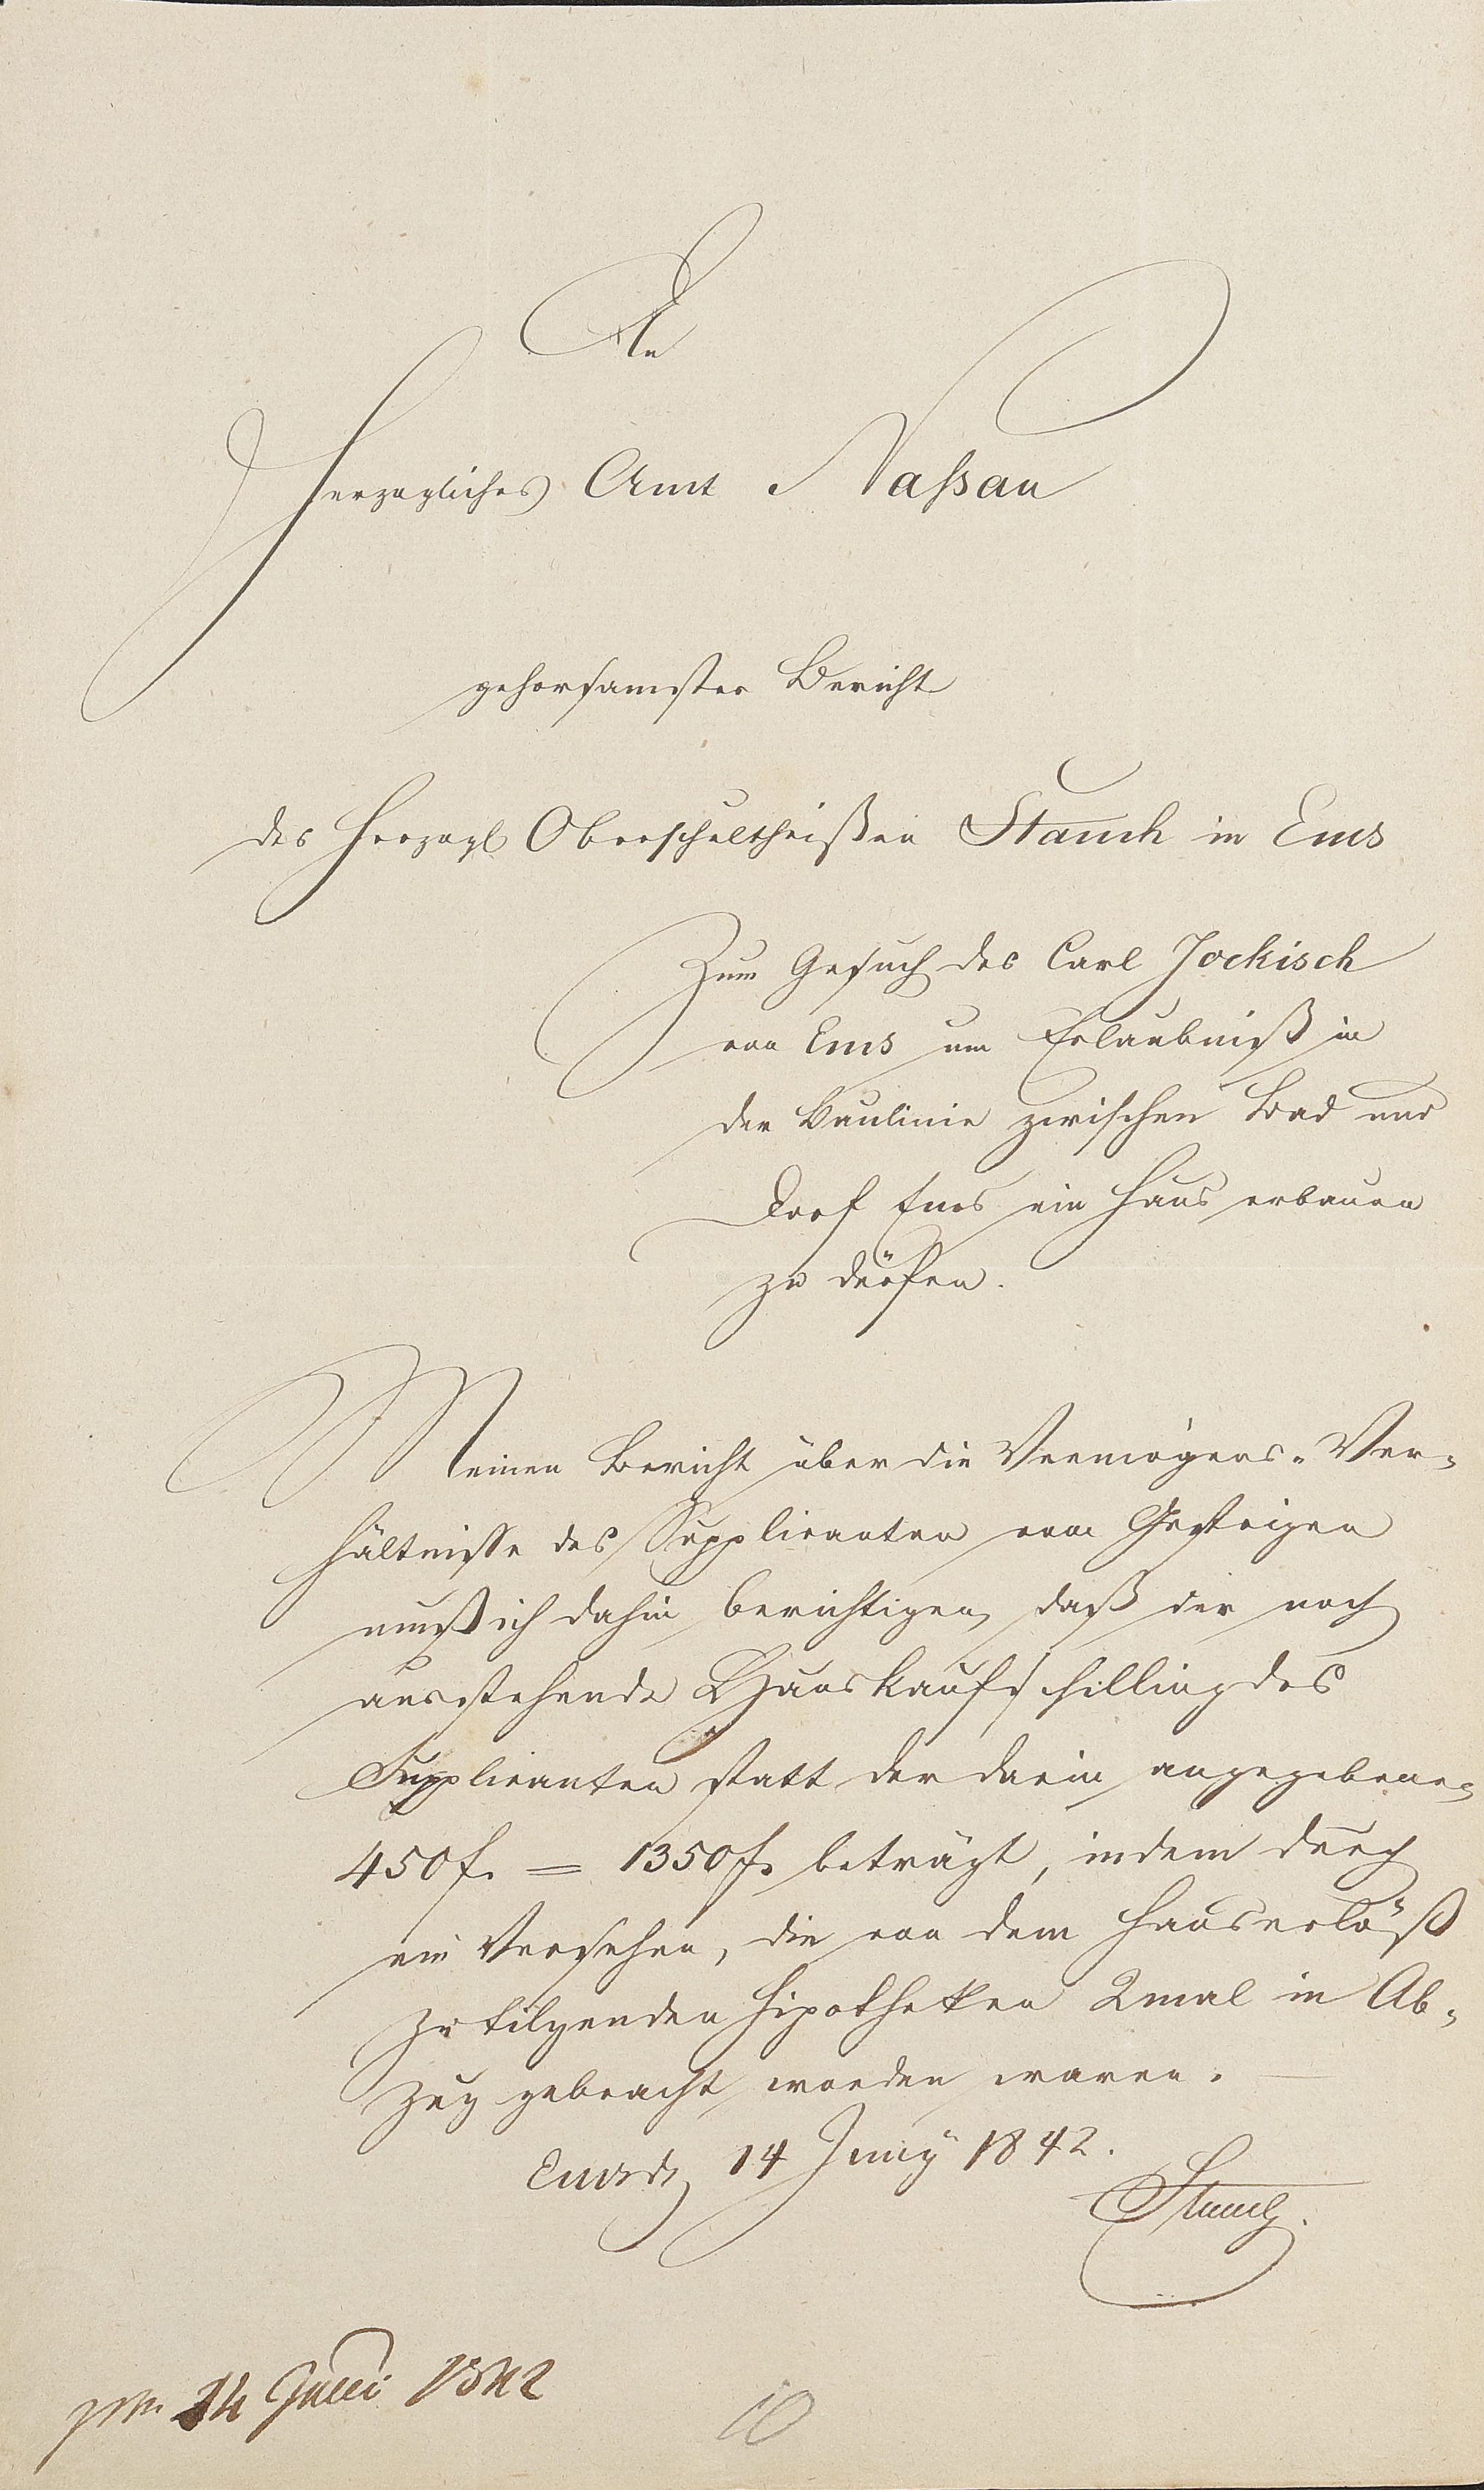 An
Herzogliches Amt Naßau
gehorsamster Bericht
des Herzogl Oberschultheißen Stauch in Ems
Zum Gesuch des Carl Jockisch
von Ems um Erlaubniß in
der Baulinie zwischen Bad und
Dorf Ems ein Haus erbauen
zu dürfen.
Meinen Bericht über die Vermögens-Ver-
hältnisse des Supplicanten vom Gestrigen
muß ich dahin berichtigen, daß der noch
ausstehende Hauskaufschilling des
Supplicanten statt der darin angegebenen
450f. = 1350f. beträgt, indem durch
ein Versehen, die von dem Hauserlöß
zu tilgenden Hipotheken 2mal in Ab-
zug gebracht worden waren.
Ems d 14 Juny 1842.
Stauch.
14 Juni 1842
10